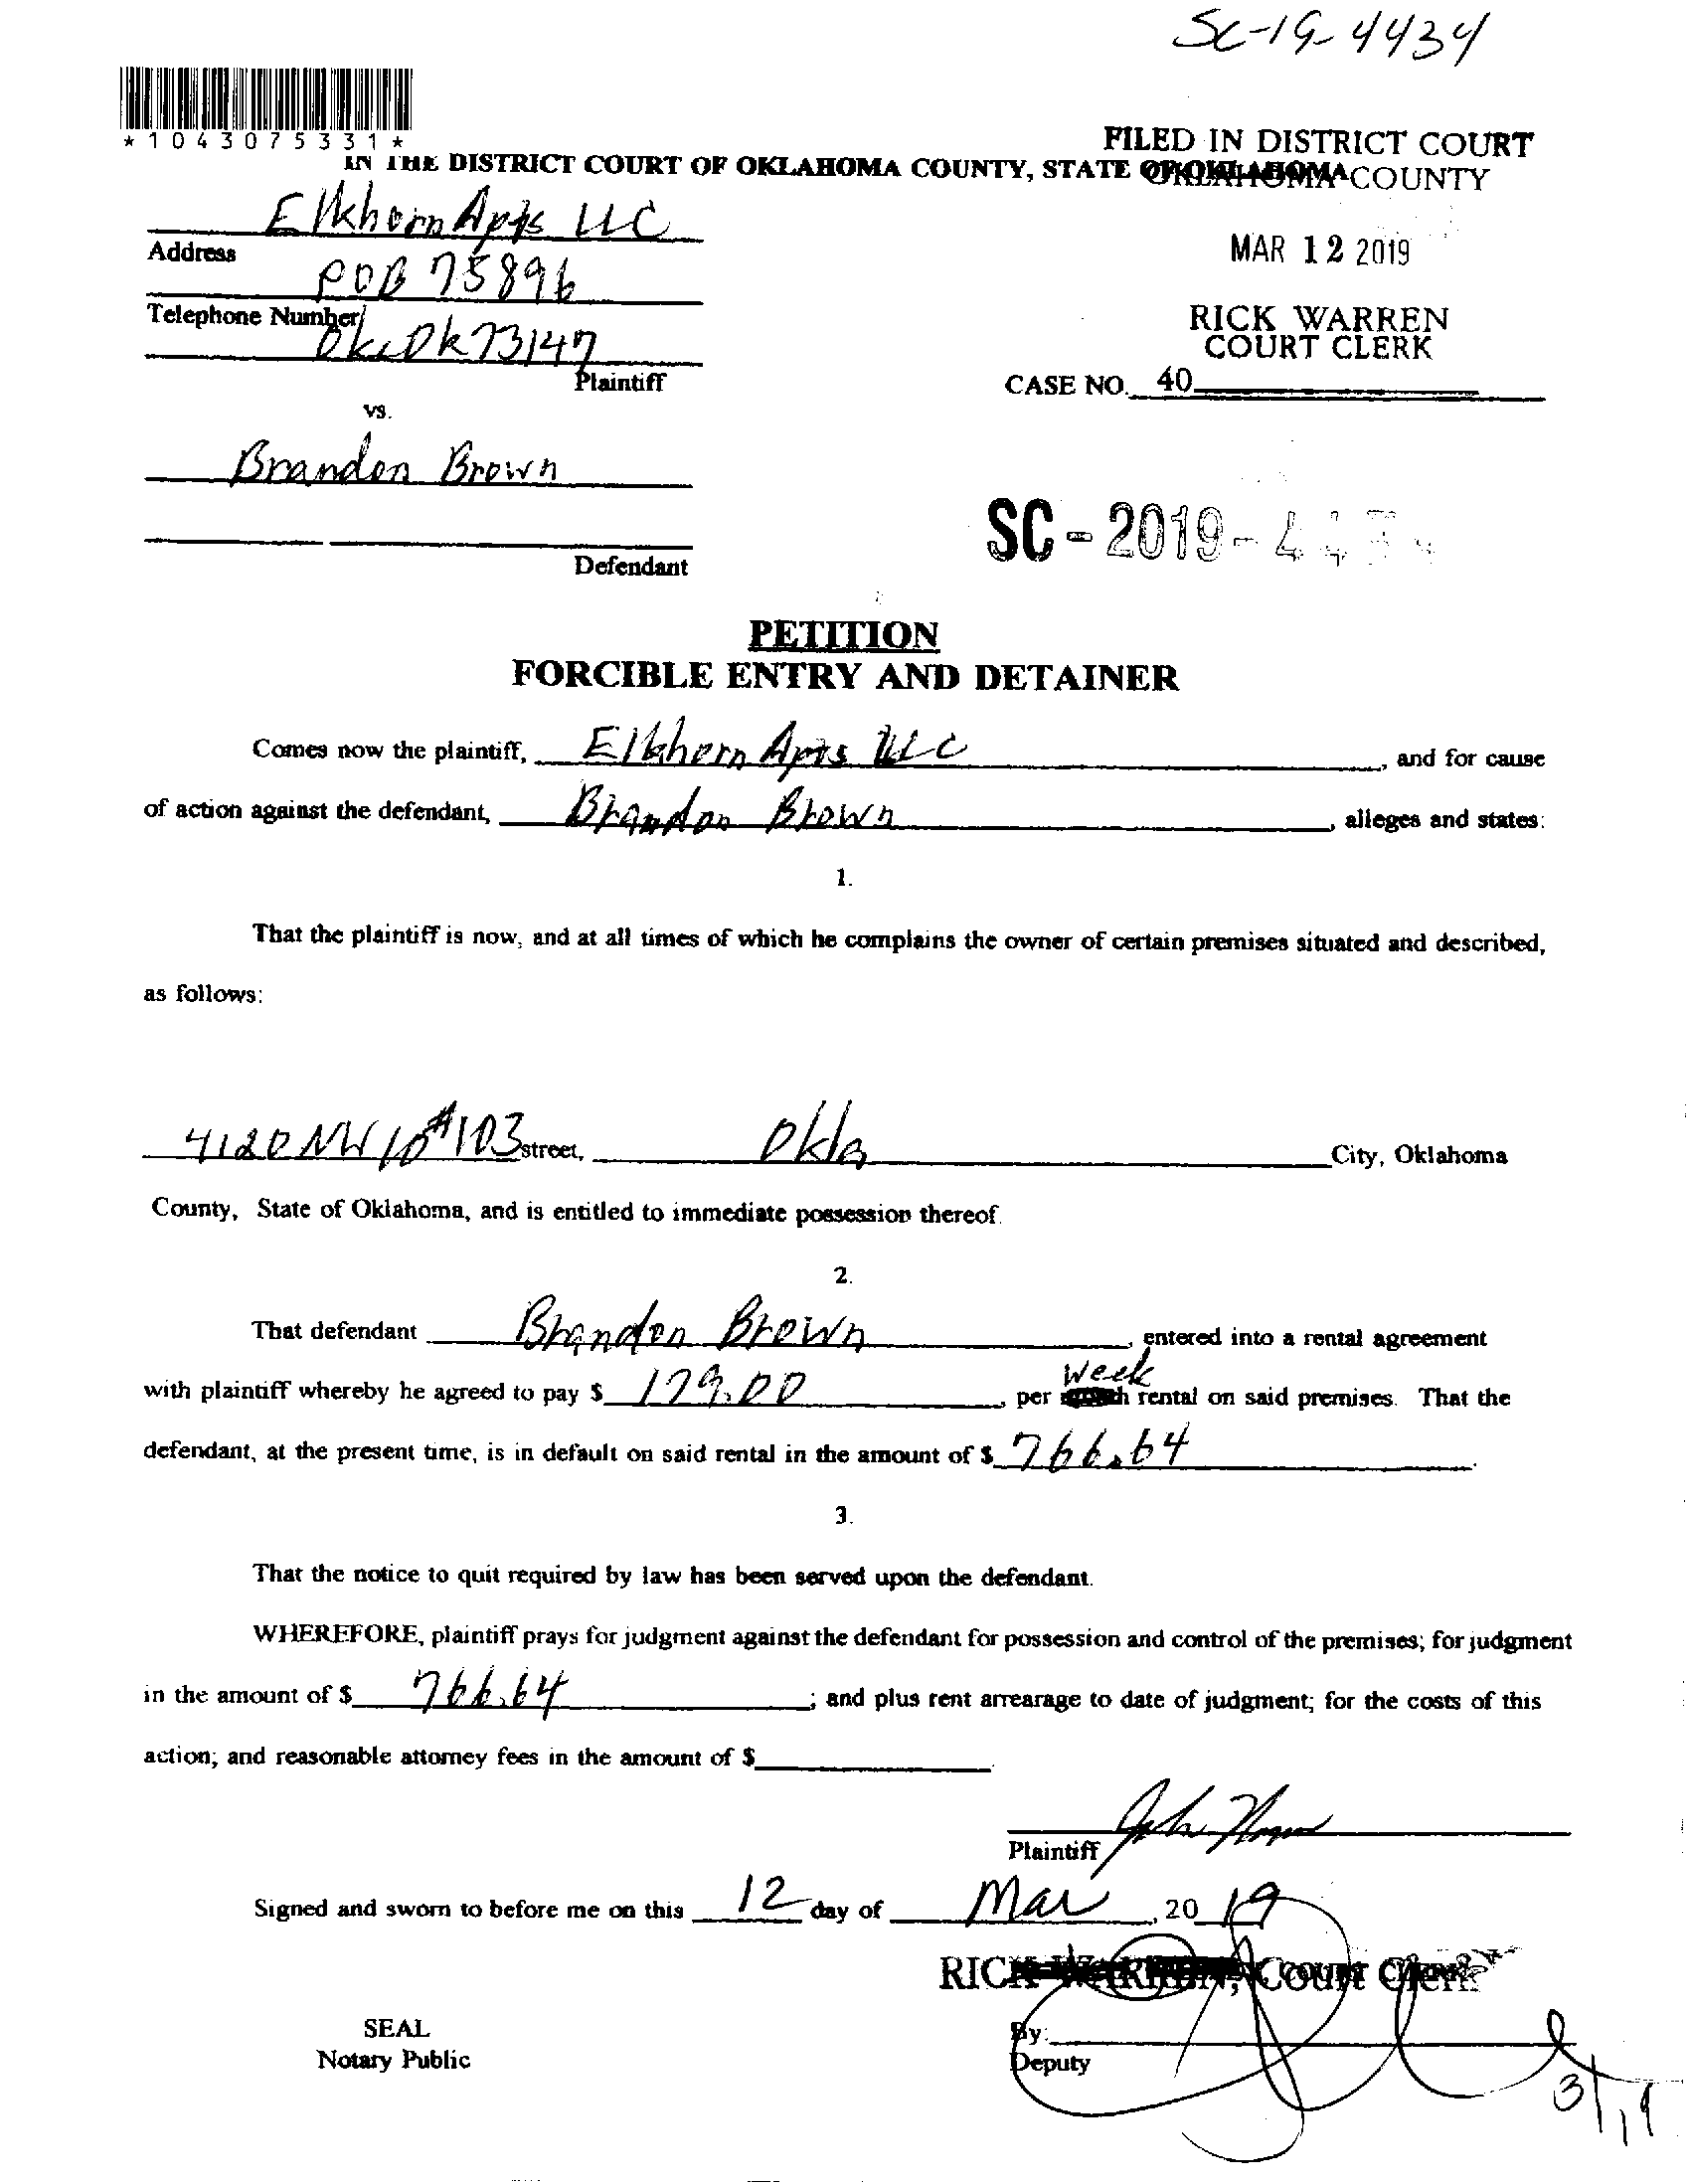 SC-19-4434
*1043075331*
FILED IN DISTRICT COURT
OKLAHOMA COUNTY
IN THE DISTRICT COURT OF OKLAHOMA COUNTY, STATE OF OKLAHOMA
Elkhorn Apts LLC
MAR 12 2019
Address
POB 75896
RICK WARREN
COURT CLERK
Telephone Number
Okc Ok 73147
Plaintiff
CASE NO. 40
vs.
Brandon Brown
SC-2019-
Defendant
PETITION
FORCIBLE ENTRY AND DETAINER
Comes now the plaintiff, Elkhorn Apts LLC, and for cause
of action against the defendant, Brandon Brown, alleges and states:
1.
That the plaintiff is now, and at all times of which he complains the owner of certain premises situated and described,
as follows:
4120 NW 10 #103 street, Okla City, Oklahoma
County, State of Oklahoma, and is entitled to immediate possession thereof.
2.
That defendant Brandon Brown, entered into a rental agreement
with plaintiff whereby he agreed to pay $ 179.00, per Week rental on said premises. That the
defendant, at the present time, is in default on said rental in the amount of $ 766.64.
3.
That the notice to quit required by law has been served upon the defendant.
WHEREFORE, plaintiff prays for judgment against the defendant for possession and control of the premises; for judgment
in the amount of $ 766.64; and plus rent arrearage to date of judgment; for the costs of this
action; and reasonable attorney fees in the amount of $
Plaintiff
Signed and sworn to before me on this 12 day of Mar, 20 19
RICK WARREN, Court Clerk
SEAL
Notary Public
By:
Deputy